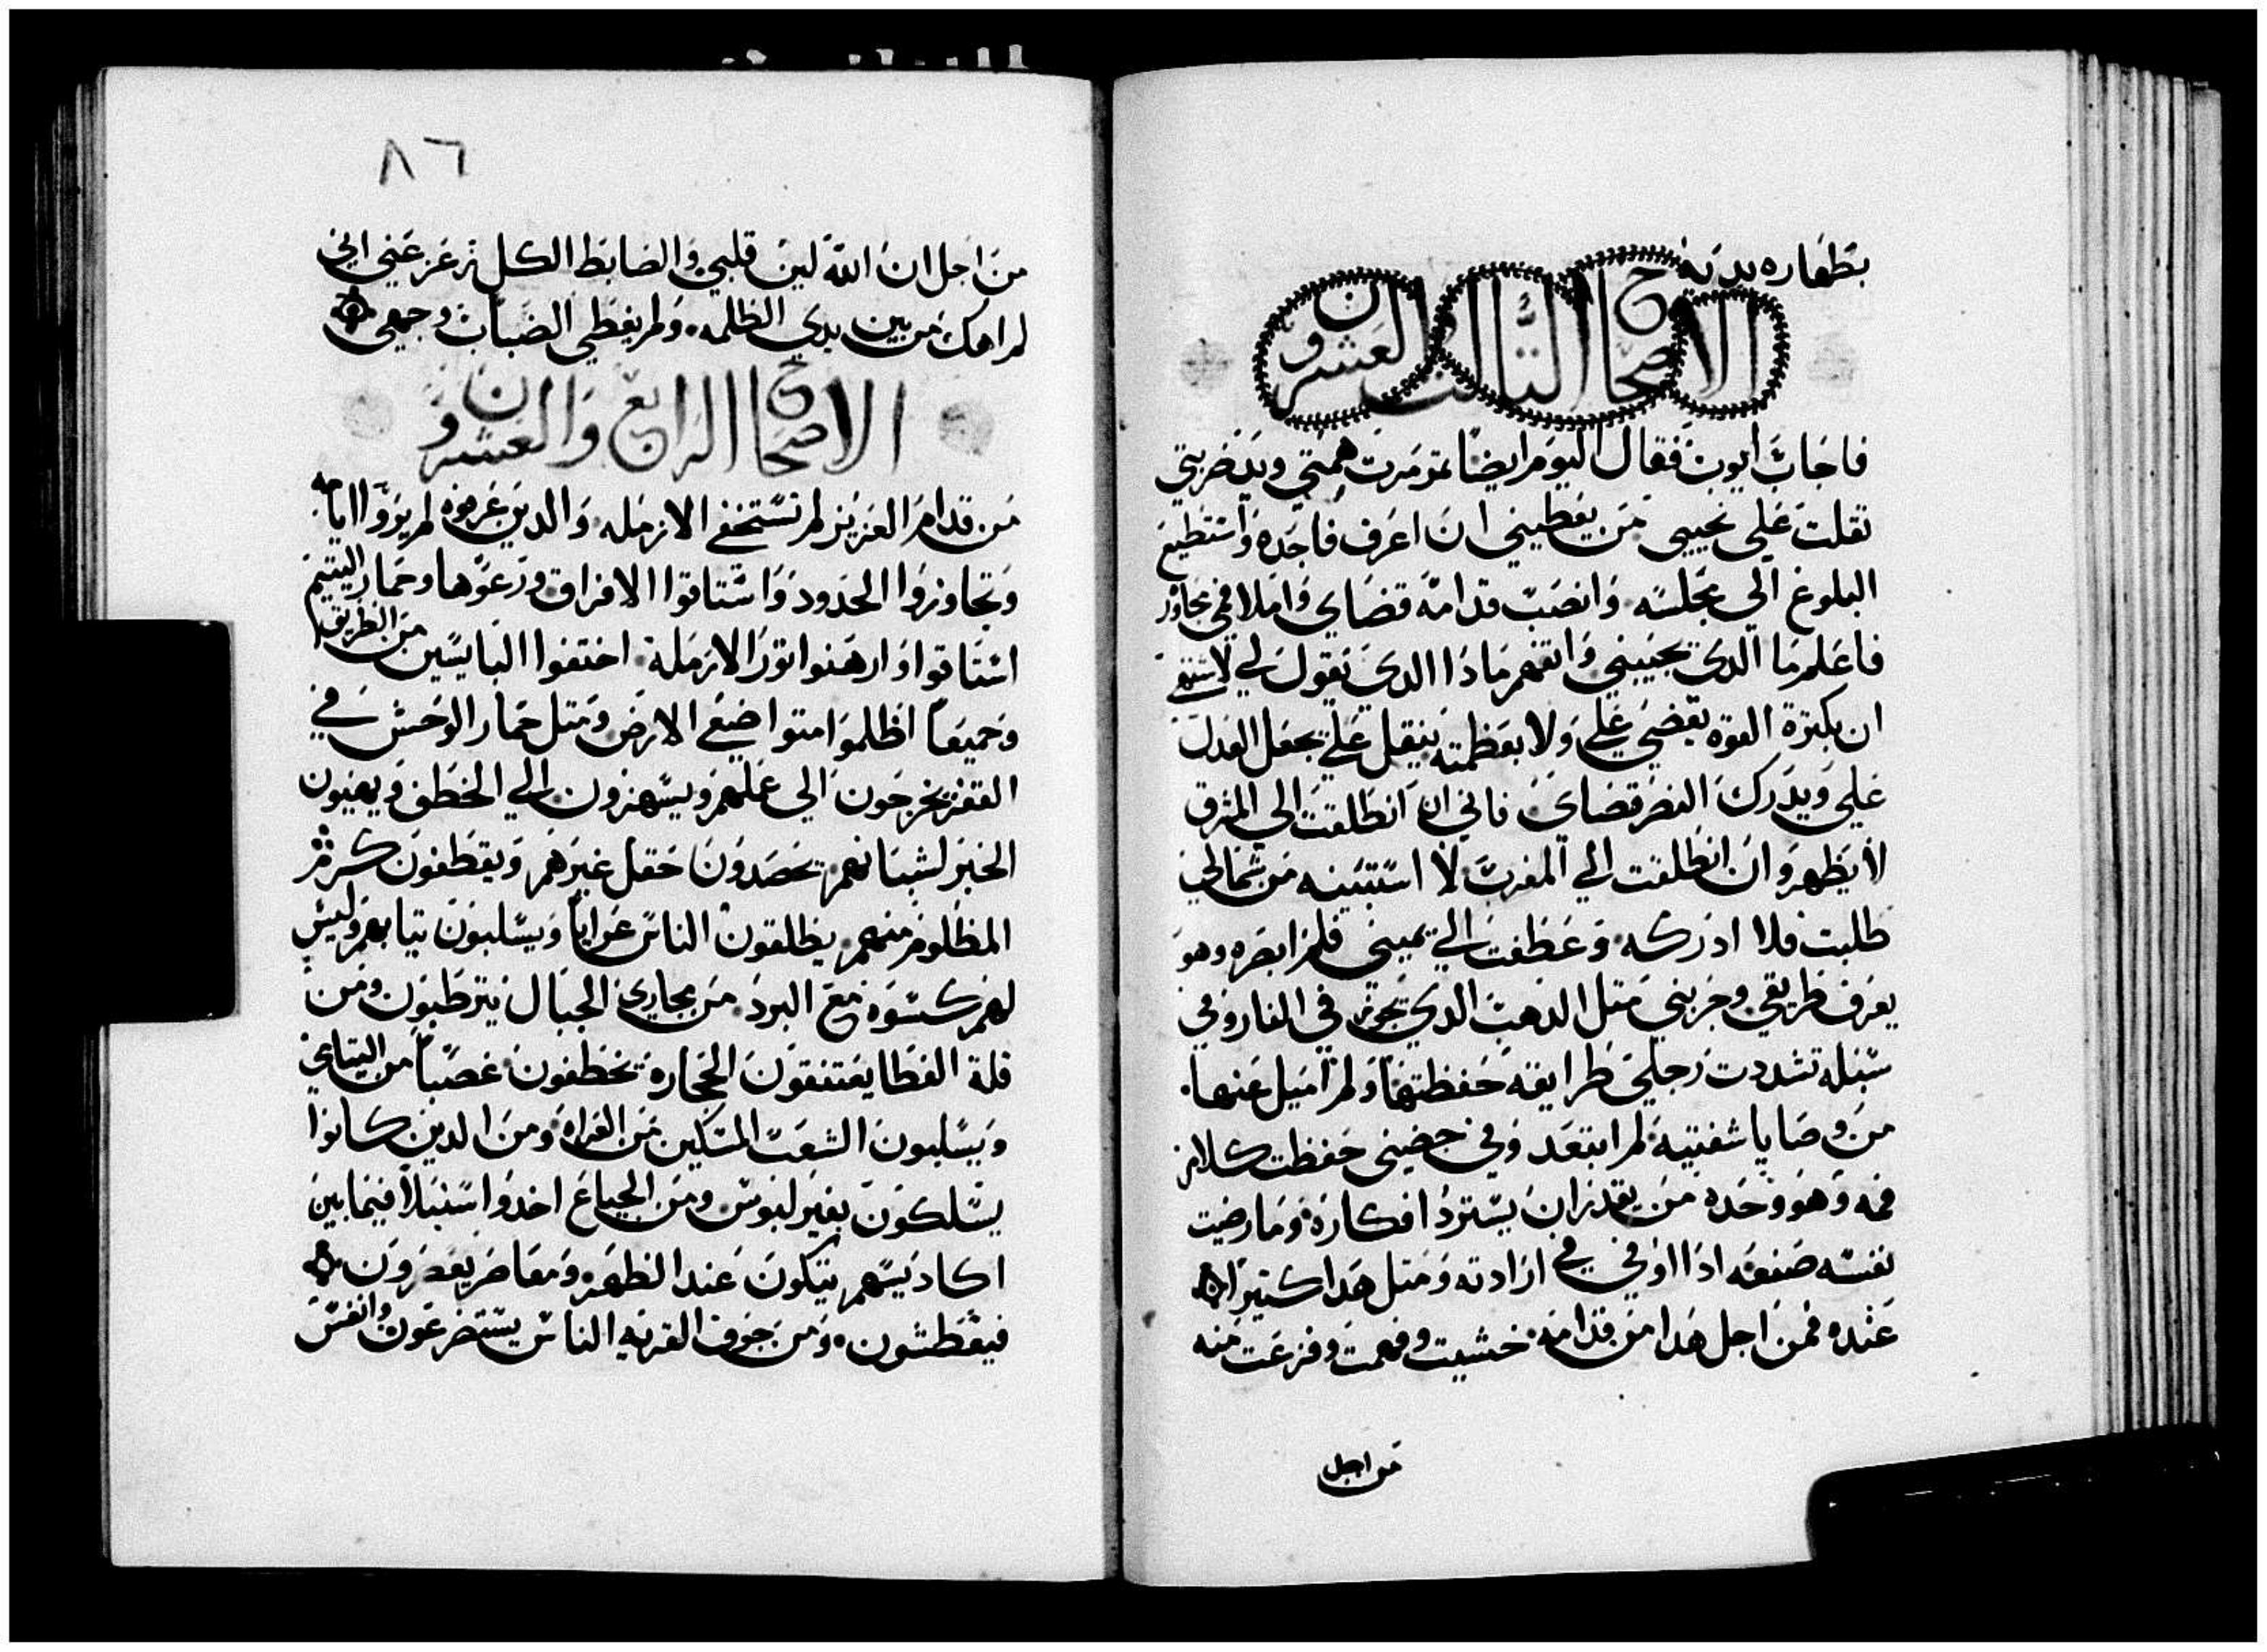 بتطهاره يديه
الاصحاح الثالث والعشرون
فاجاب ايوب فقال اليوم ايضا تمرمرت همتي ويد ضربتي
تقلت علي نحيبي من يعطيني ان اعرف فاجده واستطيع
البلوغ الي مجلسه وانصب قدامه قضاي واملا فمي محاور
فاعلم ما الدي يجيبني واتفهم مادا الدي يقول لي لاشتهي
ان بكترة القوه يقضي علي ولا بعظمته يتقل علي يجعل العدل
علي ويدرك النصر قضاي فاني ان انطلقت الي المشرق
لا يظهر وان انطلقت الي المغرب لا استبينه من شمالي
طلبت فلا ادركه وعطفت الي يميني فلم ابصره وهو
يعرف طريقي وجربني متل الدهب الدي يجوز في النار وفي
سبله تشددت رجلي طرايقه حفظتها ولم اميل عنها
من وصايا شفتيه لم ابتعد وفي حضني حفظت كلام
فمه وهو وحده من يقدر ان يسترد افكاره وما رضيت
نفسه صنعه ادا اوفي في ارادته ومتل هدا كتيرا
عنده فمن اجل هدا من قدامه خشيت وفهمت وفزعت منه
من اجل
٨٦
من اجل ان الله لين قلبي والضابط الكل زعزعني اني
لم اهلك من بين يدي الظلمه ولم يغطي الضباب وجهي
الاصحاح الرابع والعشرون
من قدام العزيز لم تستخفي الازمله والدين عرفوه لم يروا ايامه
وتجاوزوا الحدود واستاقوا الافراق ورعوها وحمار اليتيم
استاقوا وارهنوا تور الارملة اختفوا البايسين من الطريق
وجميعا اظلموا متواضعي الارض ومتل حمار الوحش في
القفز يخرجون الي عملهم ويسهزون الي الخطف ويهيون
الخبز لشبانهم يحصدون حقل غيرهم ويقطفون كرم
المظلوم منهم يطلقون الناس عرايا ويسلبون تيابهم وليس
لهم كسوه مع البرد من مجاري الجبال يترطبون ومن
قلة الغطا يعتنقون الحجاره يخطفون غصبا من اليتامي
ويسلبون الشعب المسكين من العراه ومن الدين كانوا
يسلكون بغير لبوس ومن الجياع اخدوا سنبلا فيما بين
اكاديسهم يتكون عند الظهر ومعاصر يعصرون
فيعطشون ومن جوف القريه الناس يستضرعون وانفس